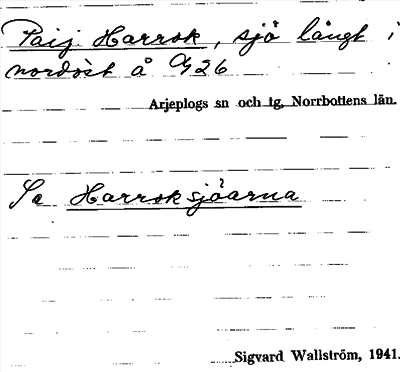 Paij Harrok, sjö långt i
nordöst å G26
Arjeplogs sn och tg, Norrbottens län.
Se Harroksjöarna
Sigvard Wallström, 1941.